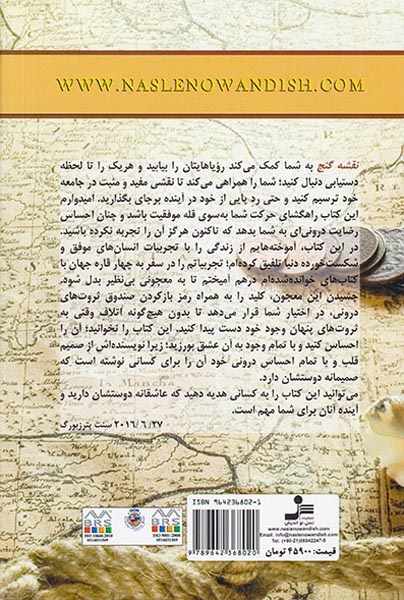 WWW.NASLENOWANDISH.COM
نقشه گنج به شما کمک می‌کند رؤیاهایتان را بیابید و هریک را تا لحظه
دستیابی دنبال کنید؛ شما را همراهی می‌کند تا نقشی مفید و مثبت در جامعه
خود ترسیم کنید و حتی رد پایی از خود در آینده برجای بگذارید. امیدوارم
این کتاب راهگشای حرکت شما به‌سوی قله موفقیت باشد و چنان احساس
رضایت درونی‌ای به شما بدهد که تاکنون هرگز آن را تجربه نکرده باشید.
در این کتاب، آموخته‌هایم از زندگی را با تجربیات انسان‌های موفق و
شکست‌خورده دنیا تلفیق کرده‌ام؛ تجربیاتم را در سفر به چهار قاره جهان با
کتاب‌های خوانده‌شده‌ام درهم آمیختم تا به معجونی بی‌نظیر بدل شود.
چشیدن این معجون، کلید را به همراه رمز بازکردن صندوق ثروت‌های
درونی، در اختیار شما قرار می‌دهد تا بدون هیچ‌گونه اتلاف وقتی به
ثروت‌های پنهان وجود خود دست پیدا کنید. این کتاب را نخوانید؛ آن را
احساس کنید و با تمام وجود به آن عشق بورزید؛ زیرا نویسنده‌اش از صمیم
قلب و با تمام احساس درونی خود آن را برای کسانی نوشته است که
صمیمانه دوستشان دارد.
می‌توانید این کتاب را به کسانی هدیه دهید که عاشقانه دوستشان دارید و
آینده آنان برای شما مهم است.
۲۰۱۶/۶/۲۷ سنت پترزبورگ
ISBN 964236802-1
9 789642 368020
BRS
BRS
نسل نو اندیش
www.naslenowandish.com
Email: info@naslenowandish.com
Tel: (+98-21)88942247-9
قیمت: ۴۵۹۰۰ تومان